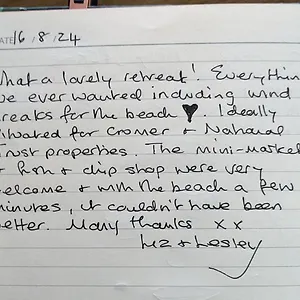 ATE 16/8/24
What a lovely retreat! Everythin
we ever wanted including wind
reaks for the beach ♥. Ideally
ituated for Cromer & National
Trust properties. The mini-market
& fish & chip shop were very
elcome & with the beach a few
minutes, it couldn't have been
better. Many thanks x x
Liz & Lesley